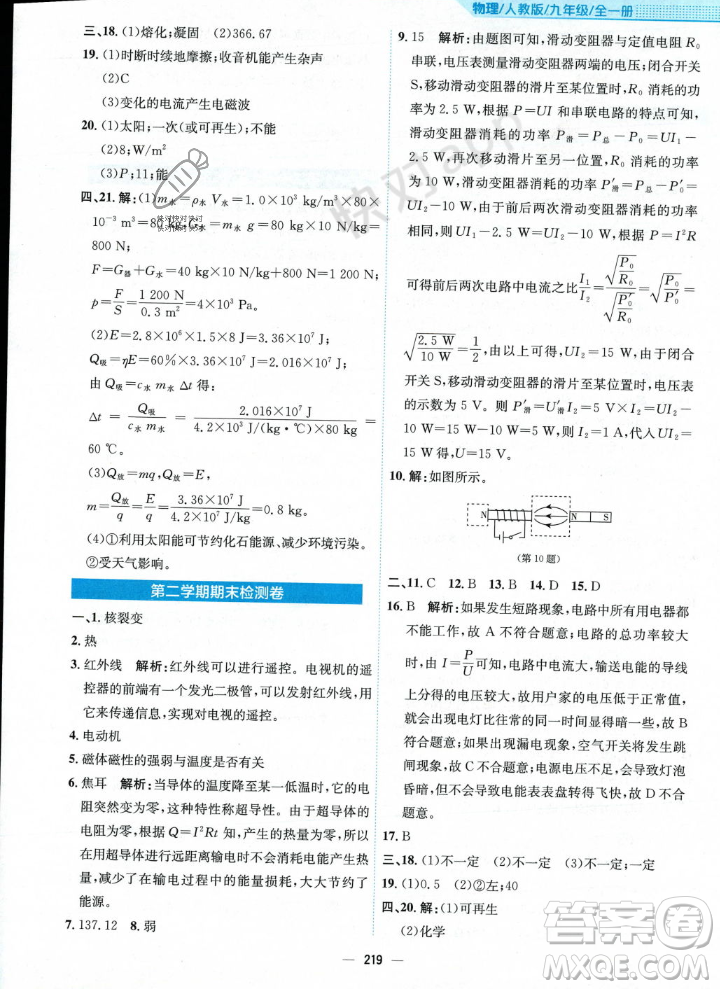 物理/人教版/九年级/全一册
三、18. (1)熔化;凝固 (2)366.67
19. (1)时断时续地摩擦;收音机能产生杂声
(2)C
(3)变化的电流产生电磁波
20. (1)太阳;一次(或可再生);不能
(2)8;W/m²
(3)P;11;能
四、21. 解:(1)m水=ρ水 V水=1.0×10³ kg/m³×80
×10⁻³ m³=80 kg,G水=m水 g=80 kg×10 N/kg=
800 N,
F=G器+G水=40 kg×10 N/kg+800 N=1 200 N
p=F/S=1 200 N/0.3 m²=4×10³ Pa。
(2)E=2.8×10⁶×1.5×8 J=3.36×10⁷ J
Q吸=ηE=60%×3.36×10⁷ J=2.016×10⁷ J
由 Q吸=c水 m水 Δt 得:
Δt=Q吸/c水 m水=2.016×10⁷ J/4.2×10³ J/(kg·℃)×80 kg=
60 ℃。
(3)Q放=mq,Q放=E,
m=Q放/q=E/q=3.36×10⁷ J/4.2×10⁷ J/kg=0.8 kg。
(4)①利用太阳能可节约化石能源、减少环境污染。
②受天气影响。
第二学期期末检测卷
一、1. 核裂变
2. 热
3. 红外线 解析:红外线可以进行遥控。电视机的遥
控器的前端有一个发光二极管,可以发出红外线,用
它来传递信息,实现对电视的遥控。
4. 电动机
5. 磁体磁性的强弱与温度是否有关
6. 焦耳 解析:当导体的温度降至某一温度时,它的电
阻突然变为零,这就是超导现象。由于超导体的
电阻为零,根据 Q=I²Rt 知,产生的热量为零。所以
在用超导体进行远距离输电时,不会产生热量,也就
是在输电过程中不会消耗电能产生热量,减少了能
量的损耗,大大节约能源。
7. 137.12 8. 弱
9. 15 解析:由题图可知,滑动变阻器与定值电阻 R₀
串联,电压表测量滑动变阻器两端的电压;闭合开关
S,移动滑动变阻器的滑片至某位置时,R₀ 消耗的功
率为 2.5 W,根据 P=UI 和串联电路的特点可知,
滑动变阻器消耗的功率 P滑=P总-P₀=UI₁-
2.5 W,再次移动滑片至另一位置,R₀ 消耗的功率为
10 W,则此时滑动变阻器消耗的功率 P′滑=P′总-
P′₀=UI₂-10 W,由于前后两次滑动变阻器消耗功率
相同,则 UI₁-2.5 W=UI₂-10 W,根据 P=I²R
可得前后两次电路中电流之比I₁/I₂=√(P₀/R₀)/√(P′₀/R₀)=√(P₀/P′₀)=
√(2.5 W/10 W)=1/2,由以上可得,UI₂=15 W,因闭合
开关 S,移动滑动变阻器的滑片至某位置时,电压表
的示数为 5 V。则 P′滑=U′滑I₂=5 V×I₂=UI₂-
10 W=15 W-10 W=5 W,解得 I₂=1 A,代入
UI₂=15 W,得 U=15 V。
10. 解:如图所示。
N N S
(第 10 题)
二、11. C 12. C 13. D 14. D 15. D
16. B 解析:如果发生短路现象,电路中所有用电器都
不能工作,故 A 不符合题意;电路的总功率过大
时,由 I=P/U可知,电路中电流大,输送电能的导线
上分得的电压较大,故用户家的电压小于正常值,
会出现电灯比平常暗的现象,故 B 符合题意;电路
中如果出现漏电现象,空气开关将会发生跳
闸现象,故 C 不符合题意;电源电压低,会导致灯泡
昏暗,但不可能导致电能表表盘转得飞快,故 D 不
符合题意。
17. B
三、18. (1)不一定 (2)不一定 (3)不一定;一定
19. (1)0.5 (2)②左;40
四、20. 解:(1)可再生
(2)化学
219
快对app
快对快对快对
快对快对快对
答案圈
MXQE.COM